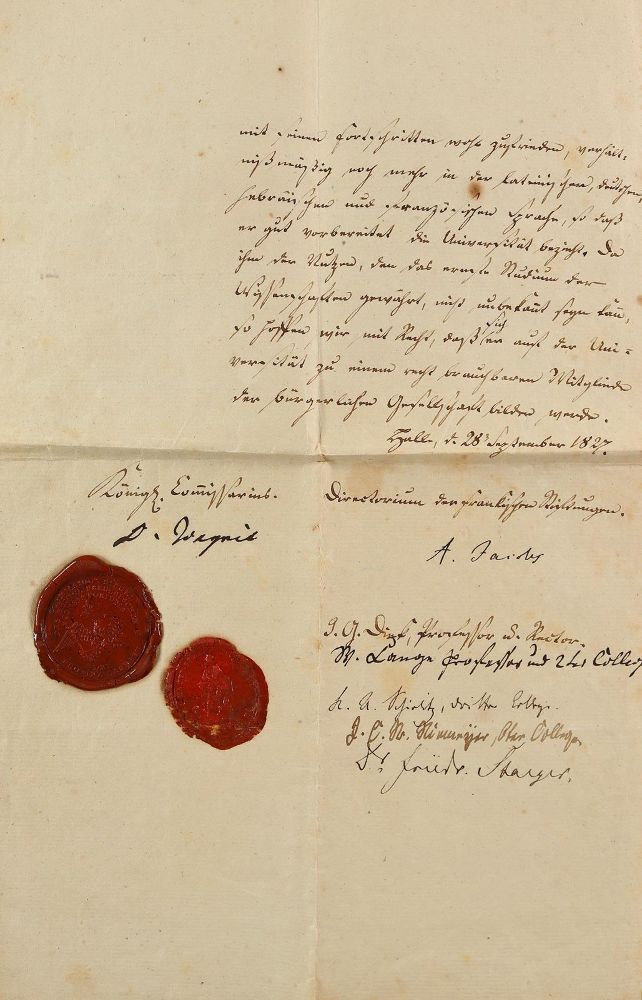 mit seinen Fortschritten wohl zufrieden, verhält-
nißmäßig noch mehr in der lateinischen, deutschen,
hebräischen und französischen Sprache, so daß
er gut vorbereitet die Universität bezieht. Da
ihm der Nutzen, den das ernste Studium der
Wissenschaften gewährt, nicht unbekannt seyn kann,
so hoffen wir mit Recht, daß er sich auf der Uni-
versität zu einem recht brauchbaren Mitgliede
der bürgerlichen Gesellschaft bilden werde.
Halle, d. 28 September 1827.
Königl. Commissarius.
Directorium der Frankischen Stiftungen.
A. Jacobs
J. G. Diek, Professor u. Rector.
W. Lange Professor und 2ter College
dritter College.
J. C. W. Niemeyer, 6ter College.
Dr. Friedr.